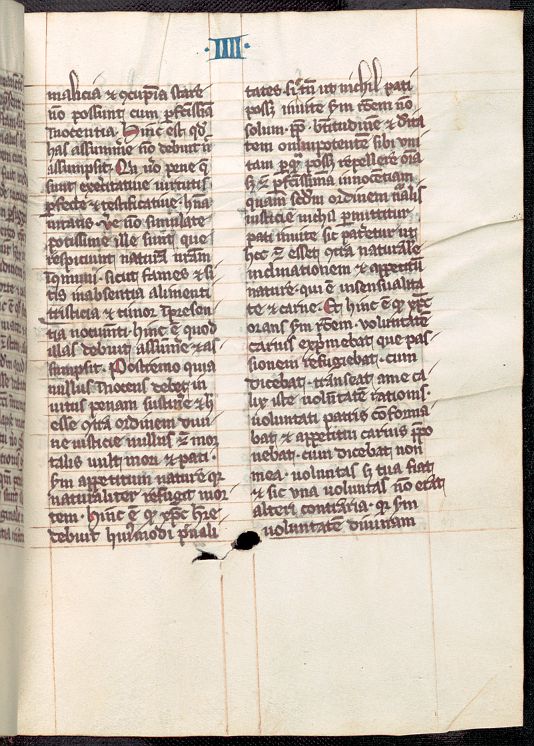 IIII
malicia ⁊ ɔcupīa stare
nō possunt cum ꝑfctissīa
Inocentia. Hinc est qđ
has assumere nō debuit nec
assumpsit. Qn̄ vō pene q̄
sunt exercitatiue uirtutis
ꝑfecte ⁊ testificatiue. hu
nitatis. ⁊ nō simulate
potissime ille sunt que
respiciunt naturā nr̄am
sicut fames ⁊ si
tis inabsentia alimenti
tristicia ⁊ timor Ipresen
tia nociuiti hinc ē quod
illas debuit assumere ⁊ as
sumpsit. Postremo quia
nullus Inocens debet in
uitus penam sustinere ⁊ h
esse ɔtra ordinem diui
ne iusticie nullus ar̄ mor
talis uult mori ⁊ pati.
sm̄ appetitum nature qr
naturaliter refugit mor
tem. hinc ē ꝙ xp̄c h̄re
debuit huiusmodi penali
tates. si tn̄ ut nichil pati
posset inuite sm̄ rōem nō
solum. ꝓp btitudinē ⁊ dīta
tem omnipotentē sibi uni
tam ꝑ quā posset repellere oīa
sꝫ ⁊ ꝑfctissimā innocentiam
quam scdm ordinem nālis
iusticie nichil ꝑmittitur
pati inuite sic patetur ut
hec ⁊ esset ɔtra naturale
inclinationem ⁊ appetitū
nature. qui ē insensualita
te ⁊ carne. Et hinc ē ꝙ xp̄c
orans sm̄ rōem. voluntatē
carnis expmebat que pas
sionem refugiebat. cum
dicebat. transeat ame ca
lix iste uolūtatē rationis.
uoluntati patris cōforma
bat ⁊ appetitum carnis p̄po
nebat. cum dicebat non
mea. uoluntas sꝫ tua fiat
⁊ sic una uoluntas nō erat
alteri contraria. qr sm̄
uoluntatē diuinam